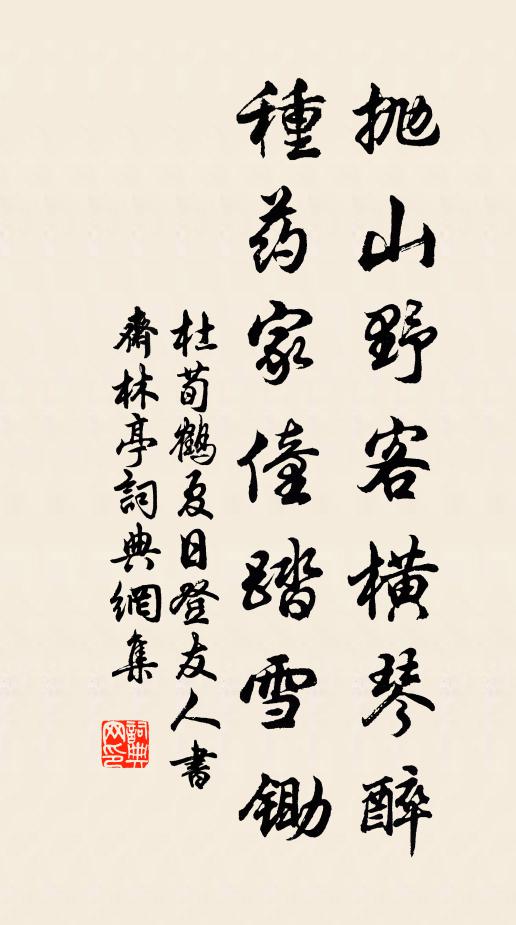 抛山野客橫琴醉
種药家僮踏雪鋤
杜荀鶴夏日登友人書
齋林亭詞典網集
詞典
网印